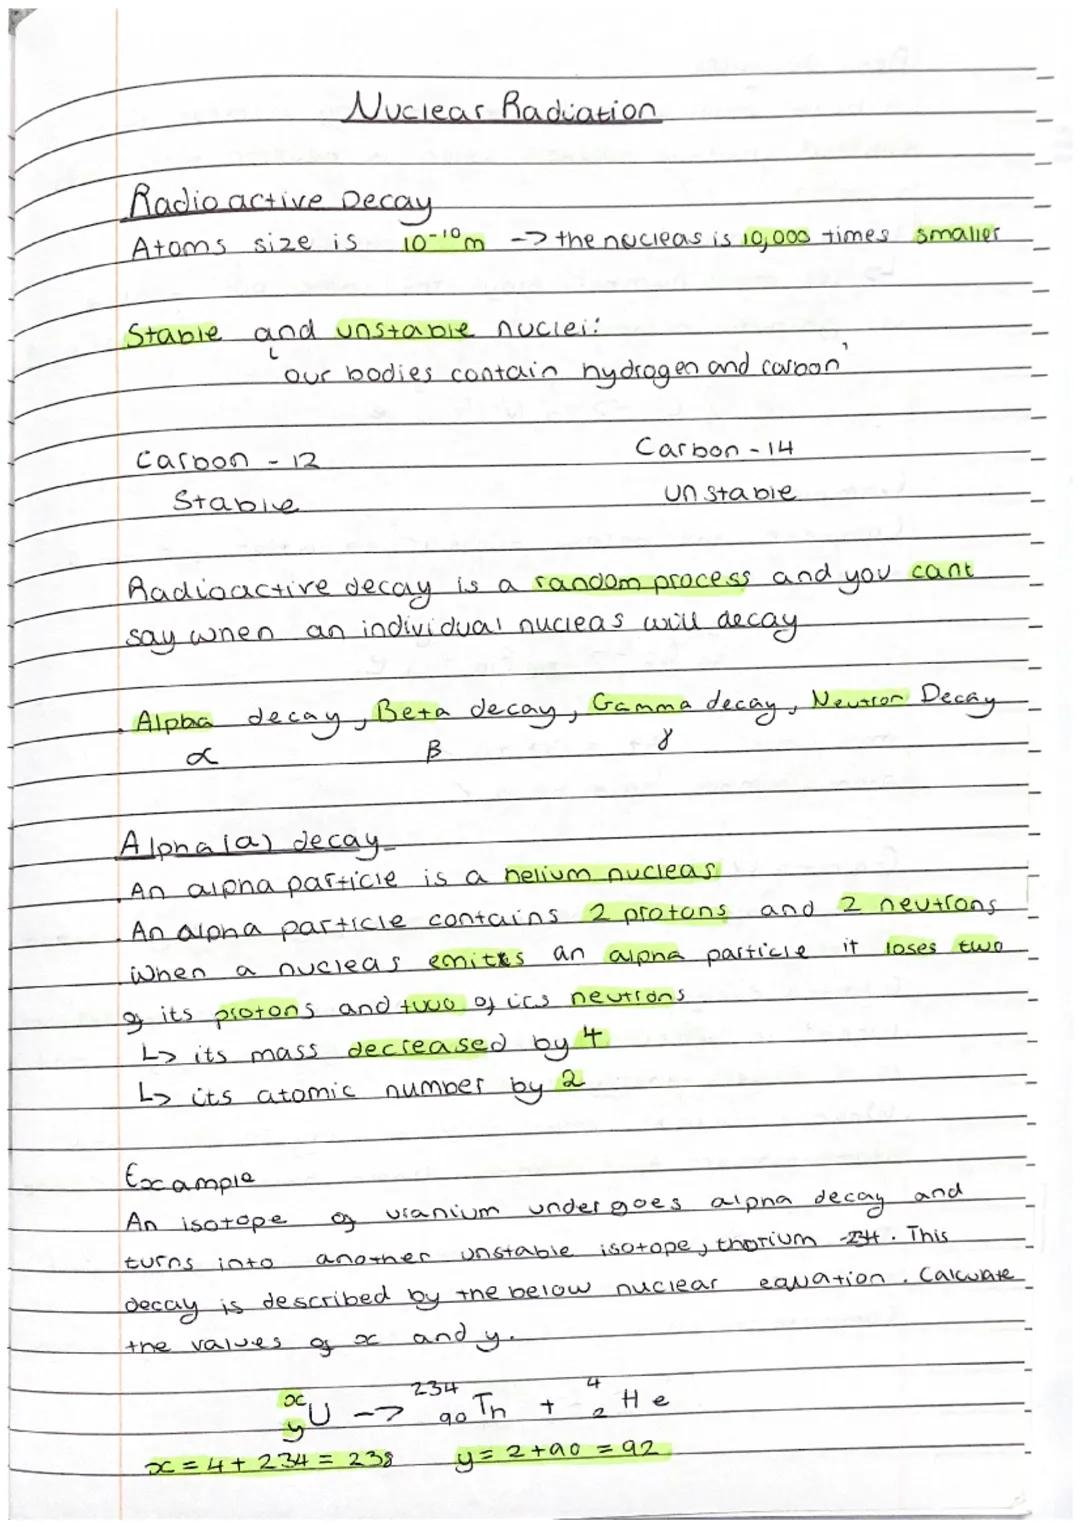 Nuclear Radiation
Radioactive Decay
Atoms size is 10⁻¹⁰m -> the nucleas is 10,000 times smaller
Stable and unstable nuclei:
'our bodies contain hydrogen and carbon'
Carbon - 12 Carbon - 14
Stable Unstable
Radioactive decay is a random process and you cant
say when an individual nucleas will decay
. Alpha decay, Beta decay, Gamma decay, Neutron Decay
α β γ
Alpha (a) decay
. An alpha particle is a helium nucleas
. An alpha particle contains 2 protons and 2 neutrons
. When a nucleas emitts an alpha particle it loses two
of its protons and two of its neutrons
↳ its mass decreased by 4
↳ its atomic number by 2
Example
An isotope of uranium undergoes alpha decay and
turns into another unstable isotope, thorium -234. This
decay is described by the below nuclear equation. Calculate
the values of x and y.
ˣᵧU -> ²³⁴₉₀Th + ⁴₂He
x = 4 + 234 = 238 y = 2 + 90 = 92